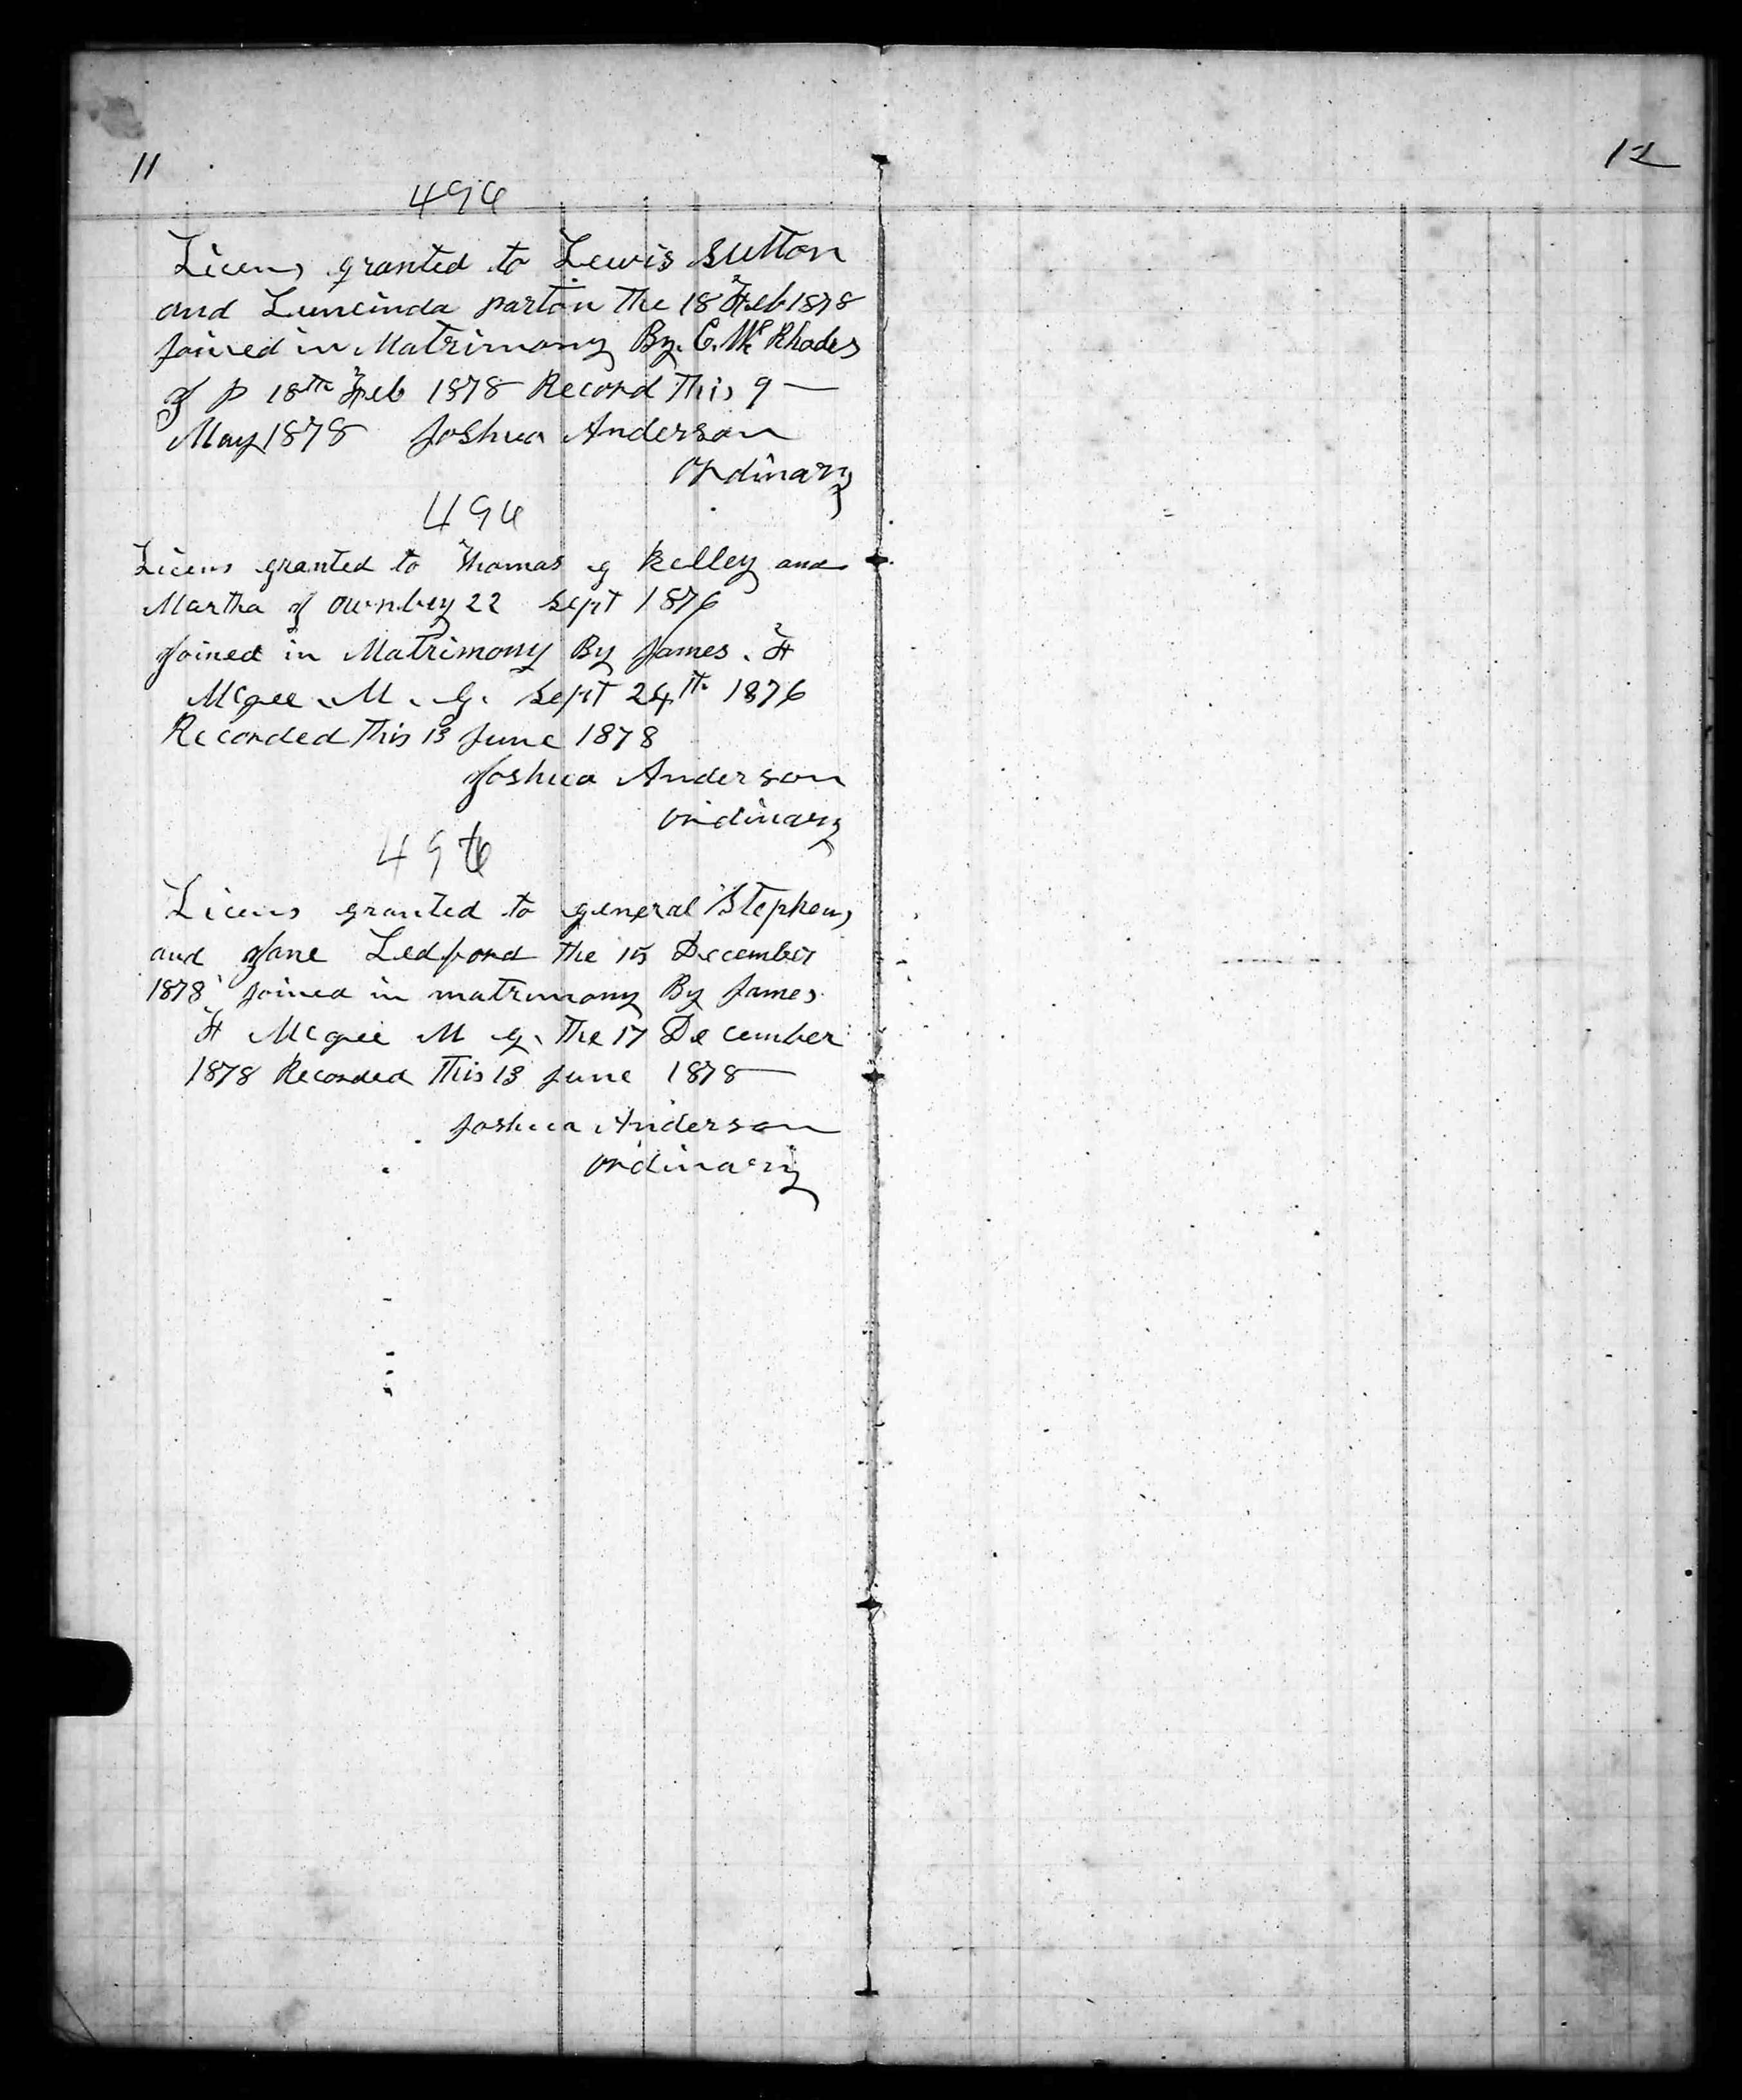 11
12
496
Licens granted to Lewis Sutton
and Luncinda parton The 18 Feb 1878
Joined in Matrimony By. C. W. Rhodes
J P 18th Feb 1878 Record This 9
May 1878 Joshua Anderson
ordinary
496
Licens granted to Thomas g Kelley and
Martha J ownbey 22 Sept 1876
Joined in Matrimony By James. H
Mcgee. M. G. Sept 24th 1876
Recorded This 13 June 1878
Joshua Anderson
ordinary
496
Licens granted to general Stephens
and Jane Ledford the 15 December
1878 Joined in matrimony By James
H Mcgee M g. The 17 December
1878 Recorded This 13 June 1878
Joshua Anderson
ordinary